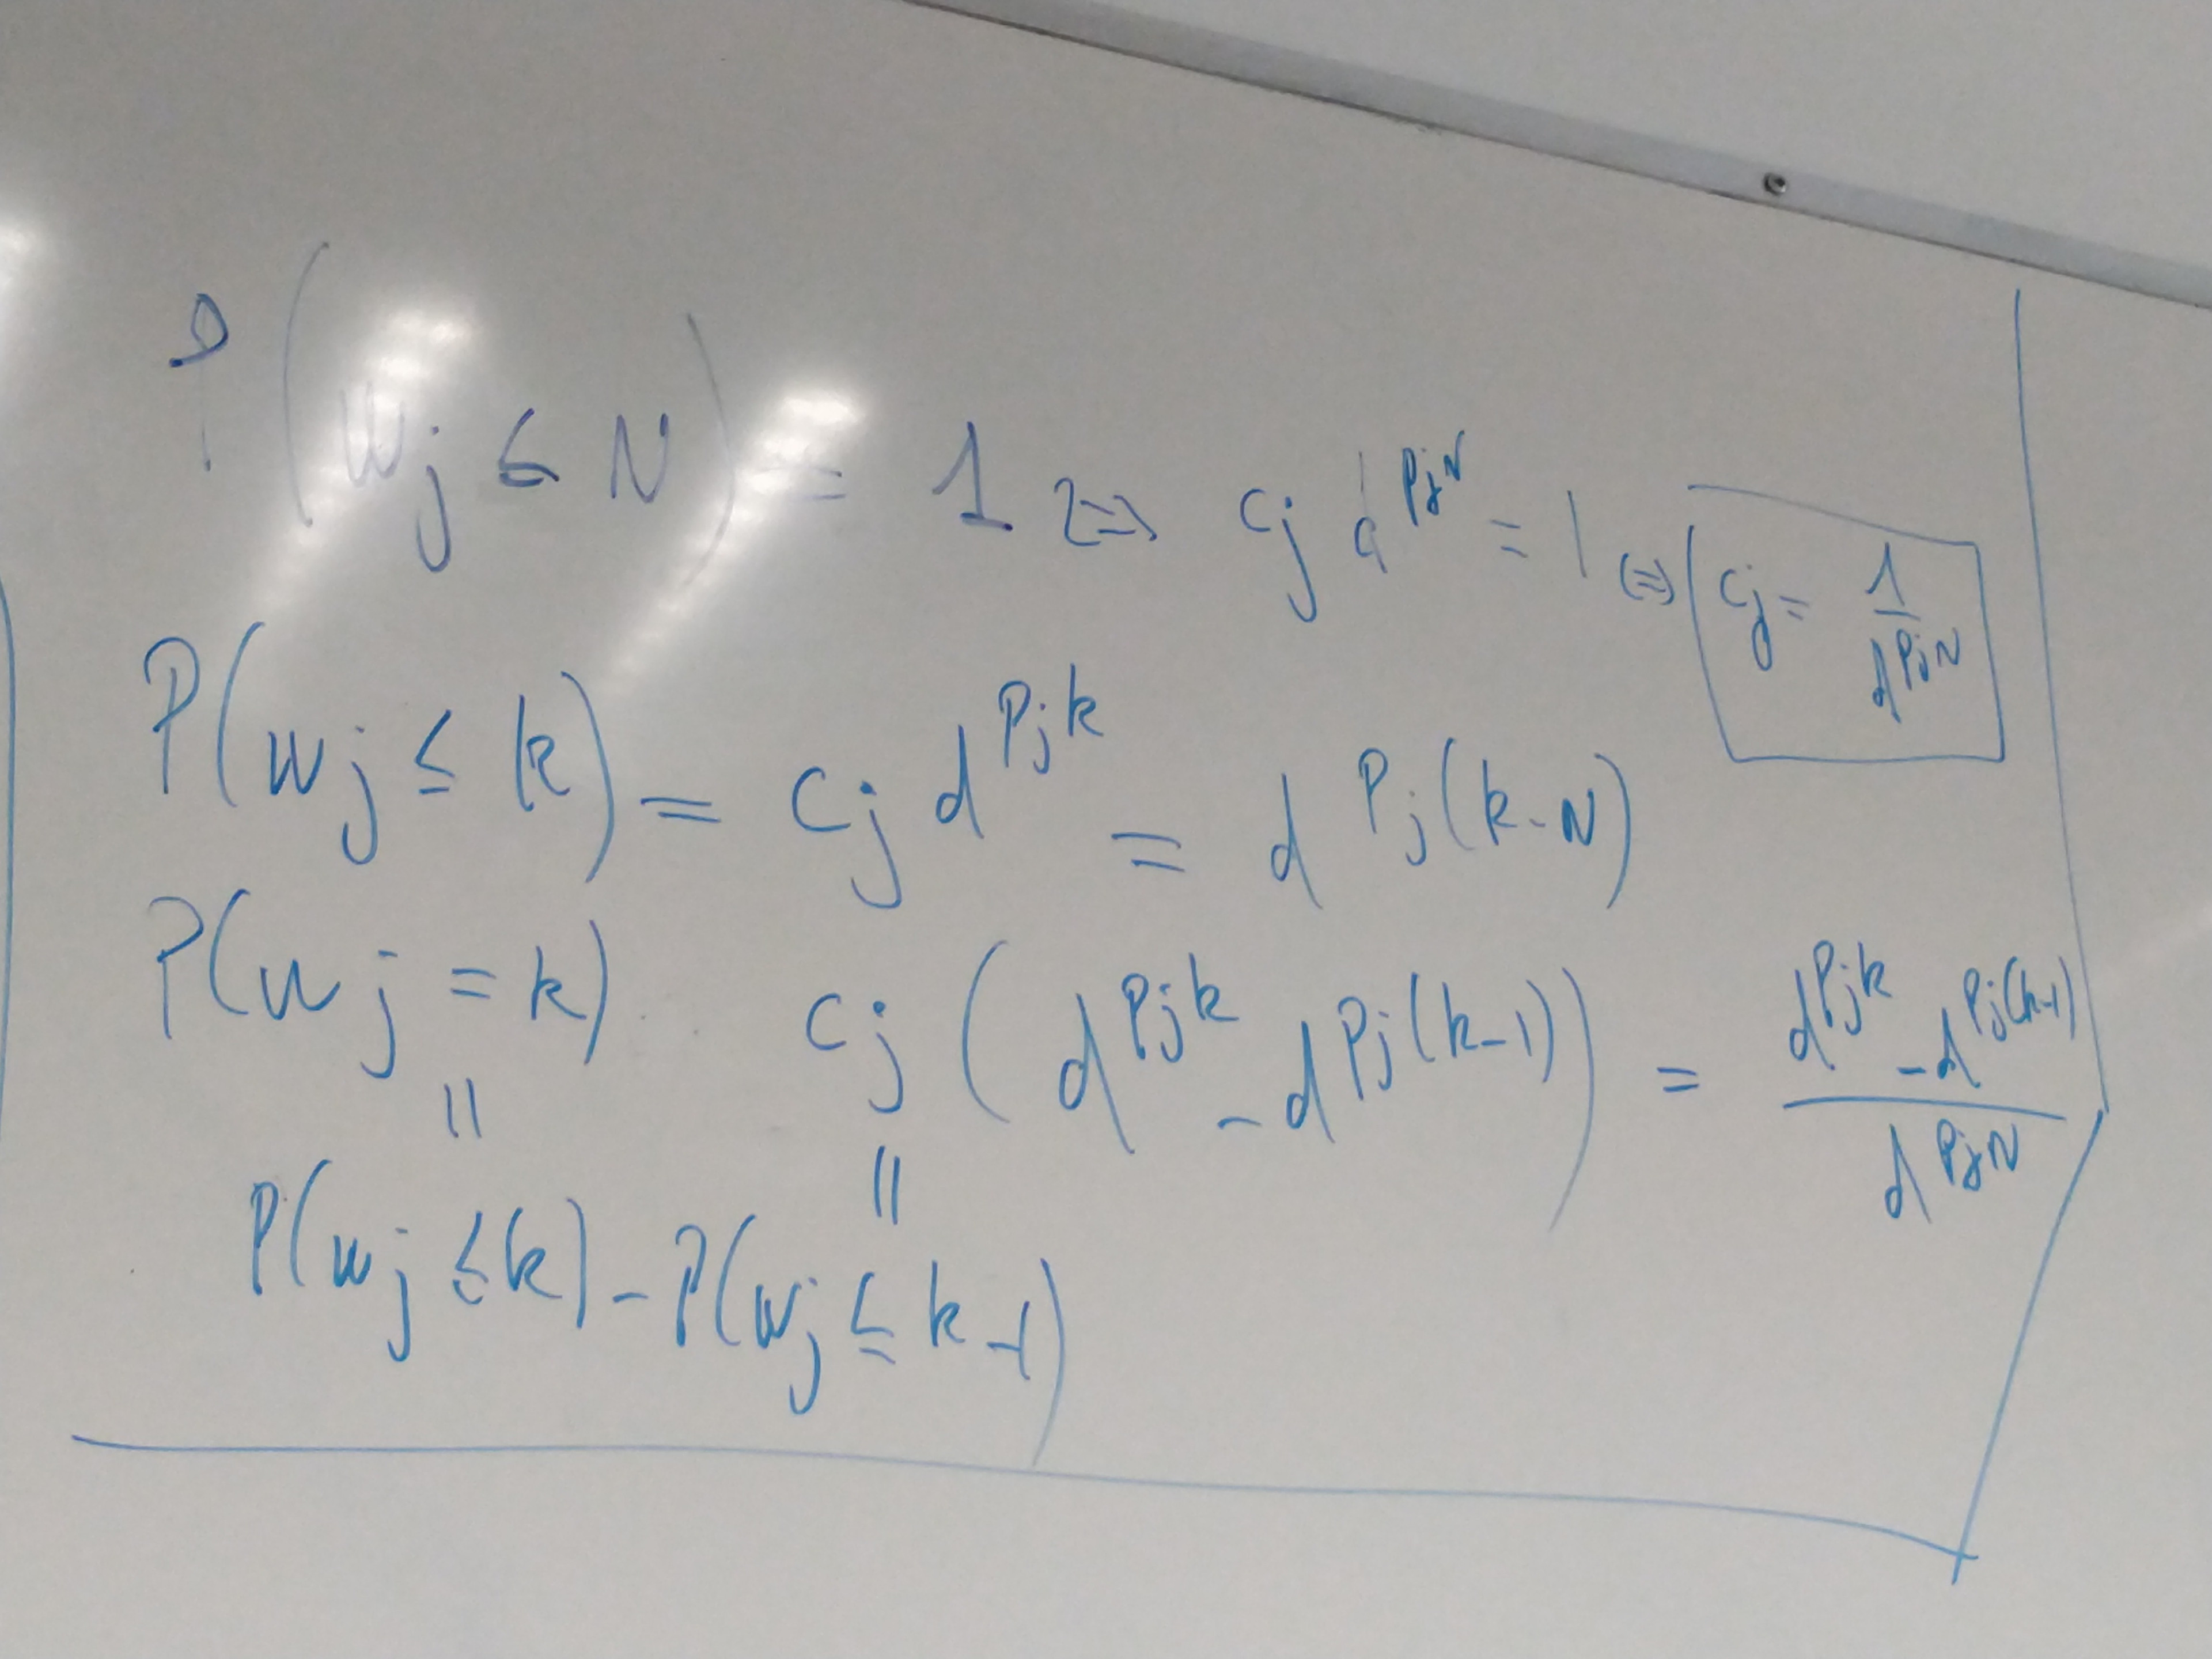 P(wj ≤ N) = 1 ⇔ cj d^{PjN} = 1 ⇔ cj = 1/d^{PjN}
P(wj ≤ k) = cj d^{Pjk} = d^{Pj(k-N)}
P(wj = k) cj (d^{Pjk} - d^{Pj(k-1)}) = (d^{Pjk} - d^{Pj(k-1)})/d^{PjN}
|| ||
P(wj ≤ k) - P(wj ≤ k-1)